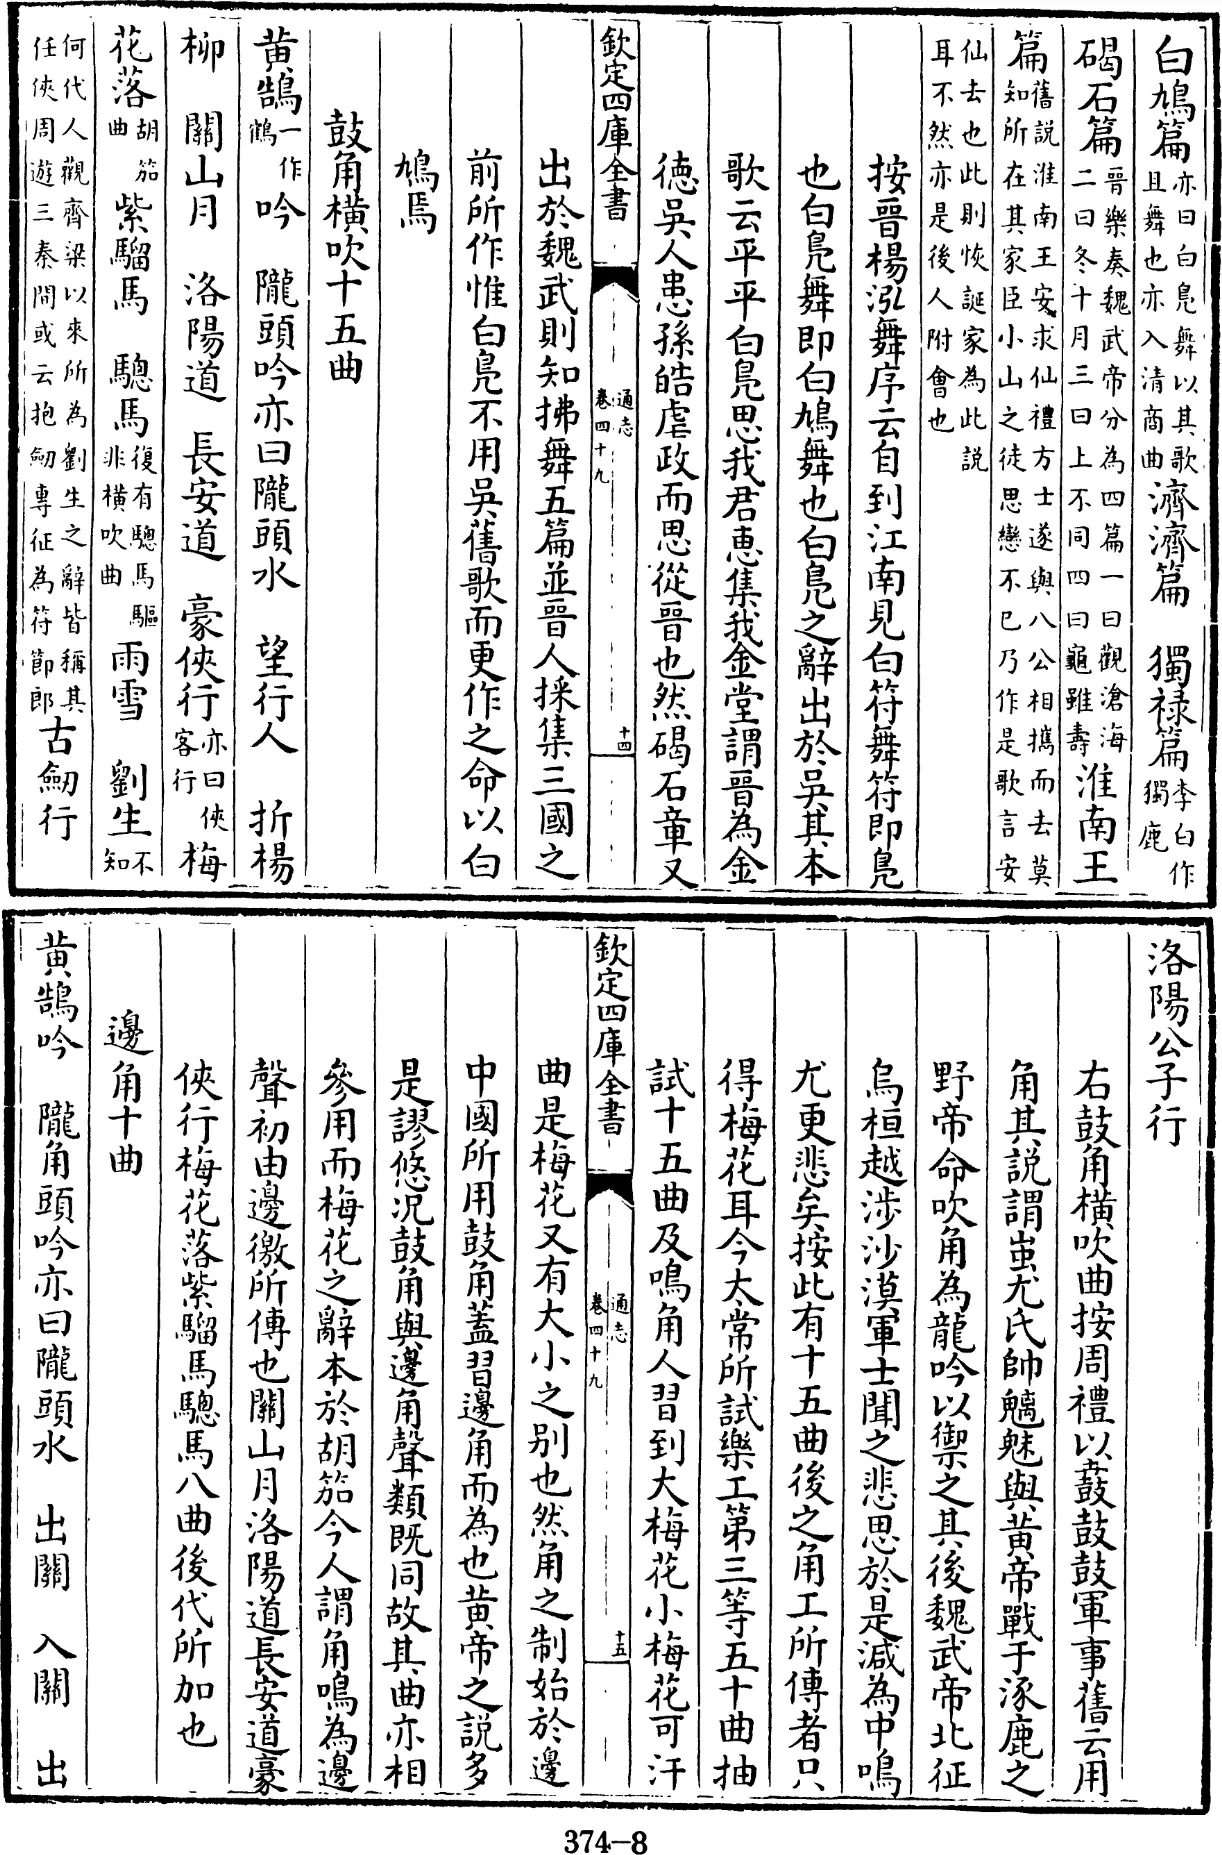 白鳩篇亦曰白鳧舞以其歌且舞也亦入清商曲濟濟篇　獨祿篇李白作獨鹿
碣石篇晉樂奏魏武帝分為四篇一曰觀滄海二曰冬十月三曰上不同四曰龜雖壽淮南王
篇舊説淮南王安求仙禮方士遂與八公相攜而去莫知所在其家臣小山之徒思戀不已乃作是歌言安
仙去也此則恢誕家為此説耳不然亦是後人附會也
按晉楊泓舞序云自到江南見白符舞符即鳧
也白鳧舞即白鳩舞也白鳧之辭出於吳其本
歌云平平白鳧思我君惠集我金堂謂晉為金
德吳人患孫皓虐政而思從晉也然碣石章又
欽定四庫全書
通志
卷四十九
十四
出於魏武則知拂舞五篇並晉人採集三國之
前所作惟白鳧不用吳舊歌而更作之命以白
鳩焉
鼓角橫吹十五曲
黄鵠一作鶴吟　隴頭吟亦曰隴頭水　望行人　折楊
柳　關山月　洛陽道　長安道　豪俠行亦曰俠客行梅
花落胡笳曲紫騮馬　驄馬復有驄馬驅非橫吹曲雨雪　劉生不知
何代人觀齊梁以來所為劉生之辭皆稱其任俠周遊三秦間或云抱劒專征為符節郎古劒行
洛陽公子行
右鼓角橫吹曲按周禮以鼖鼓鼓軍事舊云用
角其説謂蚩尤氏帥魑魅與黄帝戰于涿鹿之
野帝命吹角為龍吟以禦之其後魏武帝北征
烏桓越涉沙漠軍士聞之悲思於是減為中鳴
尤更悲矣按此有十五曲後之角工所傳者只
得梅花耳今太常所試樂工第三等五十曲抽
試十五曲及鳴角人習到大梅花小梅花可汗
欽定四庫全書
通志
卷四十九
十五
曲是梅花又有大小之别也然角之制始於邊
中國所用鼓角蓋習邊角而為也黄帝之説多
是謬悠况鼓角與邊角聲類既同故其曲亦相
參用而梅花之辭本於胡笳今人謂角鳴為邊
聲初由邊徼所傳也關山月洛陽道長安道豪
俠行梅花落紫騮馬驄馬八曲後代所加也
邊角十曲
黄鵠吟　隴角頭吟亦曰隴頭水　出關　入關　出
374-8